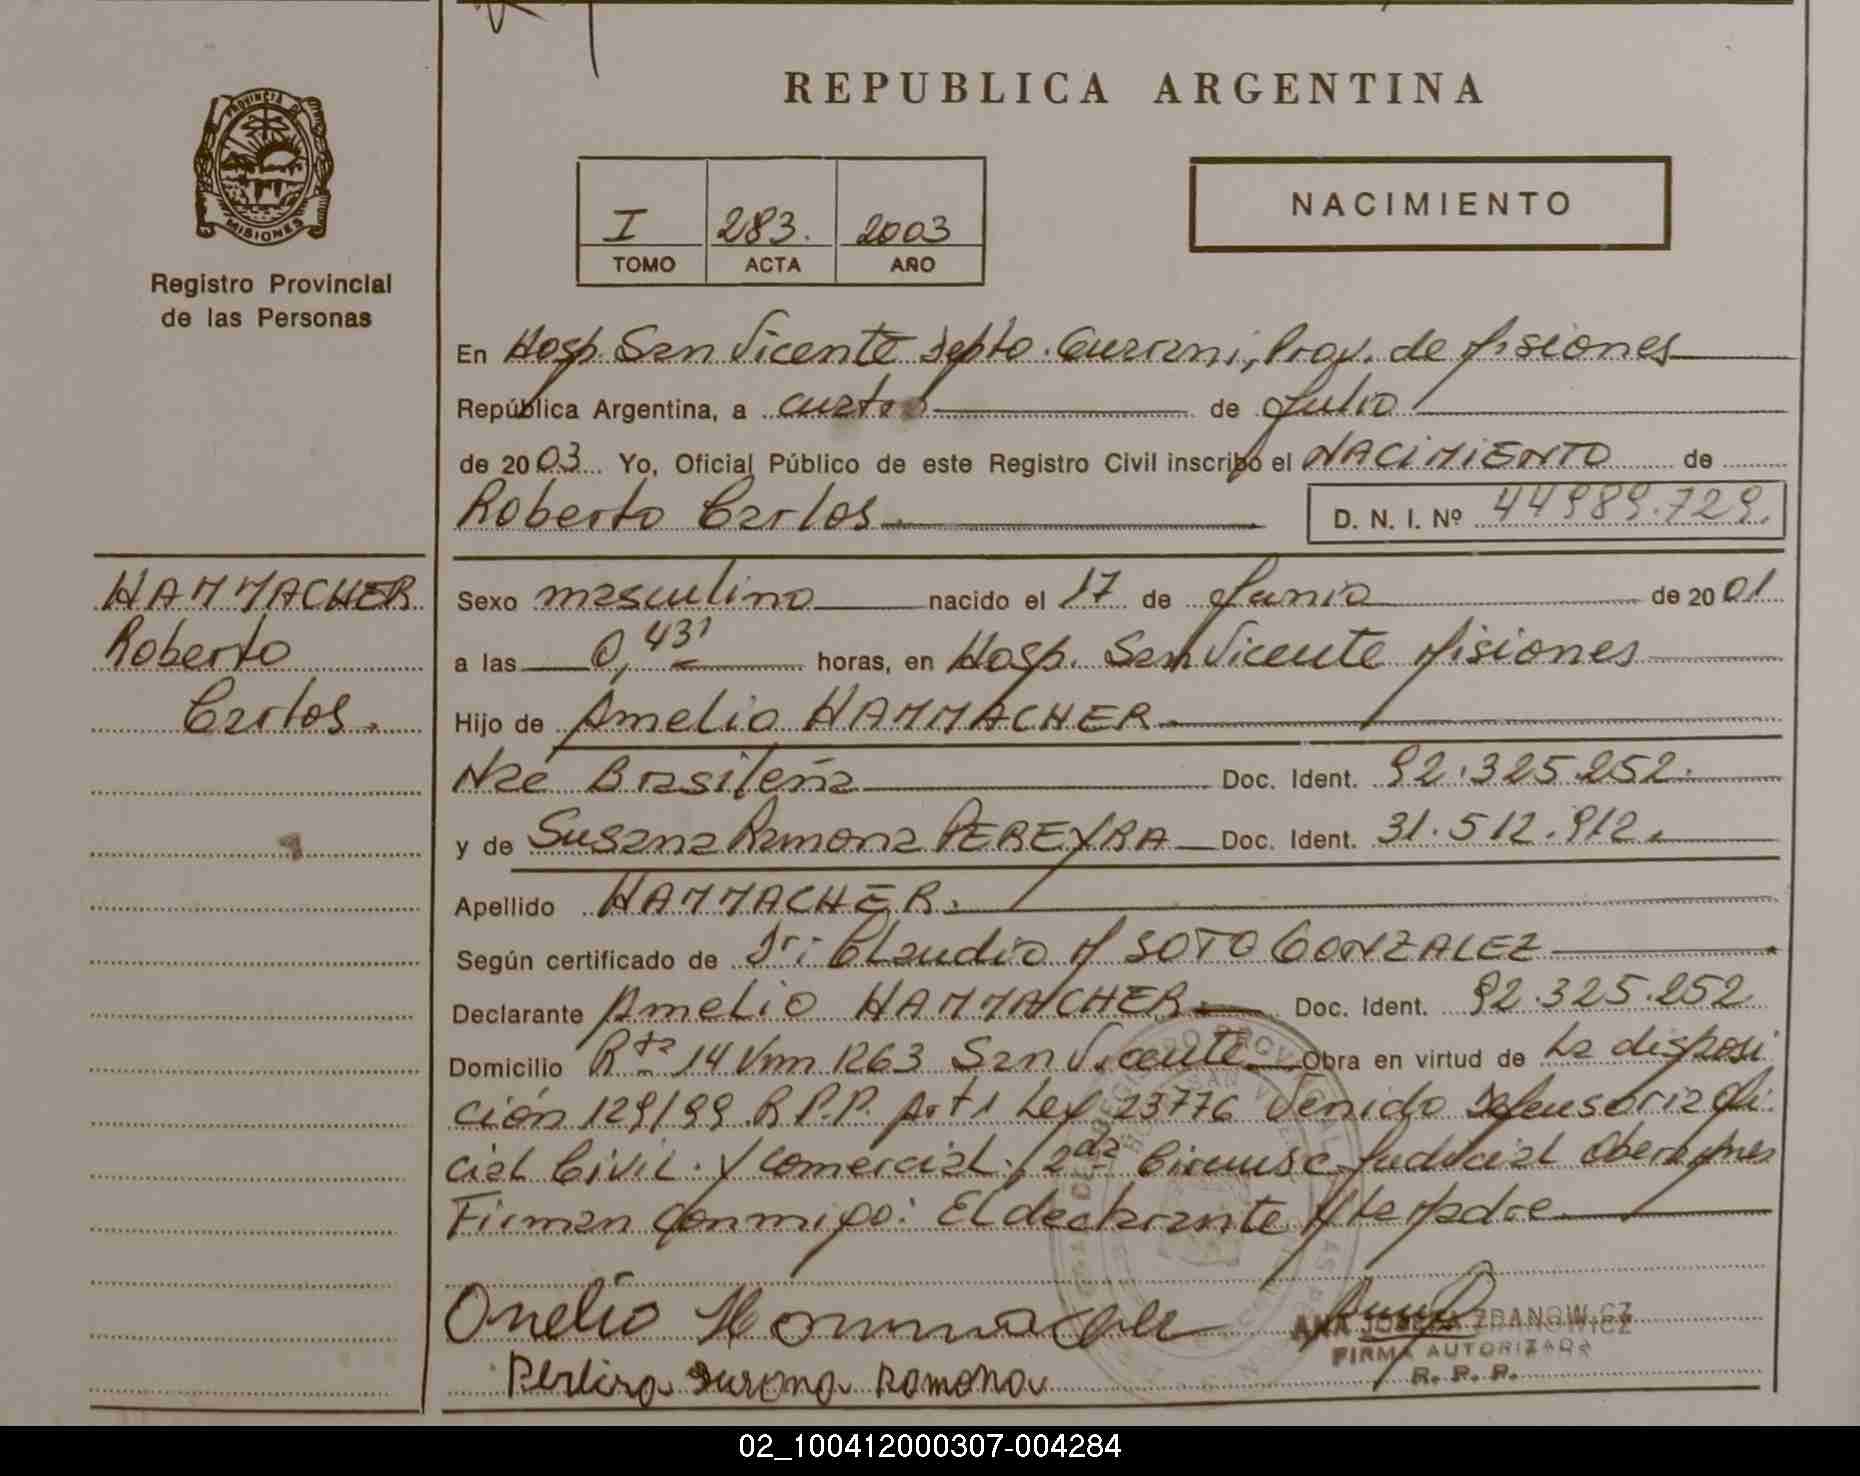 REPUBLICA ARGENTINA
PROVINCIA DE
MISIONES
Registro Provincial
de las Personas
I 283. 2003
TOMO ACTA AÑO
NACIMIENTO
En Hosp. San Vicente Depto. Guarani, Prov. de Misiones
República Argentina, a cuatro de Julio
de 2003 Yo, Oficial Público de este Registro Civil inscribo el NACIMIENTO de
Roberto Carlos D. N. I. Nº 44989.729.
HAMMACHER
Roberto
Carlos.
Sexo masculino nacido el 17 de Junio de 2001
a las 0,43' horas, en Hosp. San Vicente Misiones
Hijo de Amelio HAMMACHER
Nac Brasileña Doc. Ident. 92.325.252.
y de Susana Ramona PEREYRA Doc. Ident. 31.512.912.
Apellido HAMMACHER.
Según certificado de Dr: Claudio M SOTO GONZALEZ
Declarante Amelio HAMMACHER Doc. Ident. 92.325.252
Domicilio Rta 14 Km 1263 San Vicente Obra en virtud de La disposi
ción 129/99 R.P.P. Art 1 Ley 23776 Venido Defensoria Ofi
cial Civil y Comercial, 2da Circunsc Judicial Obera Mnes
Firman Conmigo: El declarante y la Madre
Onelio
Pereira Susana Ramona
ANA JOSEFA ZDANOWICZ
FIRMA AUTORIZADA
R. P. P.
02_100412000307-004284